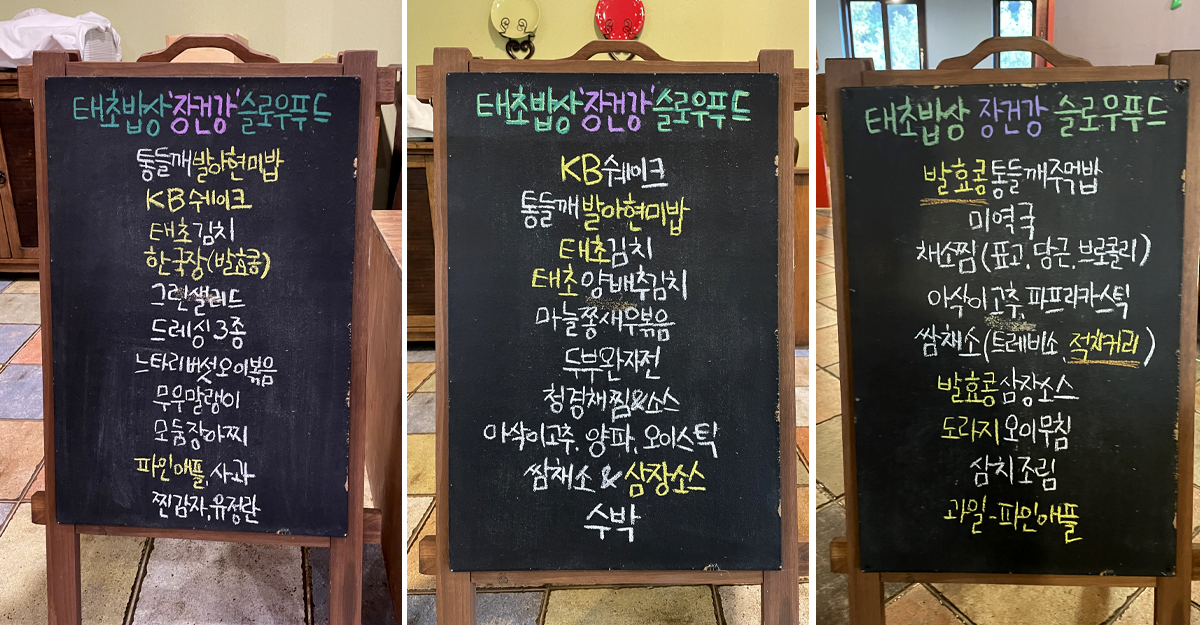 태초밥상'장건강'슬로우푸드
통들깨발아현미밥
KB쉐이크
태초김치
한국장(발효콩)
그린샐러드
드레싱3종
느타리버섯오이볶음
무우말랭이
모둠장아찌
파인애플,사과
찐감자,유정란
태초밥상'장건강'슬로우푸드
KB쉐이크
통들깨발아현미밥
태초김치
태초양배추김치
마늘쫑새우볶음
두부완자전
청경채찜&소스
아삭이고추,양파,오이스틱
쌈채소&삼장소스
수박
태초밥상 장건강 슬로우푸드
발효콩통들깨주먹밥
미역국
채소찜(표고,당근,브로콜리)
아삭이고추,파프리카스틱
쌈채소(트레비소,적치커리)
발효콩삼장소스
도라지오이무침
삼치조림
과일-파인애플